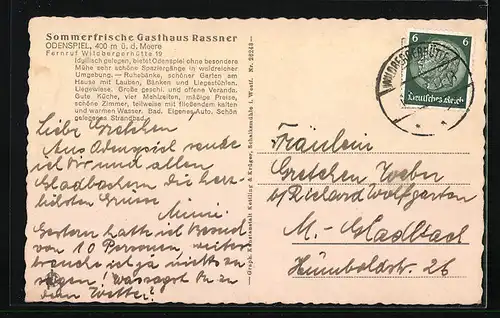 Sommerfrische Gasthaus Rassner
ODENSPIEL, 400 m ü. d. Meere
Fernruf Wildbergerhütte 19
Idyllisch gelegen, bietet Odenspiel ohne besondere
Mühe sehr schöne Spaziergänge in waldreicher
Umgebung. — Ruhebänke, schöner Garten am
Hause mit Lauben, Bänken und Liegestühlen.
Liegewiese. Große geschl. und offene Veranda.
Gute Küche, vier Mahlzeiten, mäßige Preise,
schöne Zimmer, teilweise mit fließendem kalten
und warmen Wasser. Bad. Eigenes Auto. Schön
gelegenes Strandbad.
Liebe Gretchen!
Aus Odenspiel sende
ich Dir und allen
Gladbachern die herz-
lichsten Grüsse
Mimi.
Gestern hatte ich Besuch
von 10 Personen, weiter
brauche ich ja nicht zu
sagen! Was sagst Du zu
dem Wetter?
Graph. Kunstanstalt Kettling & Krüger, Schalksmühle i. Westf. Nr.
6 6
Deutsches Reich
WILDBERGERHÜTTE
Fräulein
Gretchen Weber
b/ Richard Wolfgarten
M.-Gladbach
Humboldstr. 26